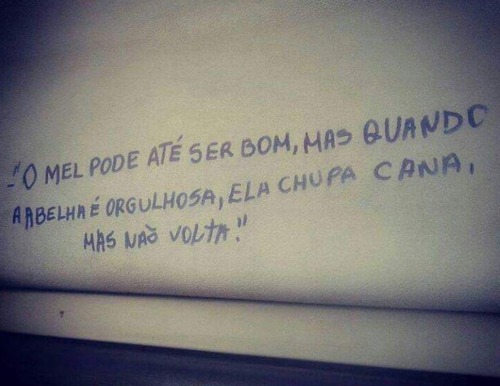 -"O MEL PODE ATÉ SER BOM, MAS QUANDO
A ABELHA É ORGULHOSA, ELA CHUPA CANA,
MAS NÃO VOLTA."